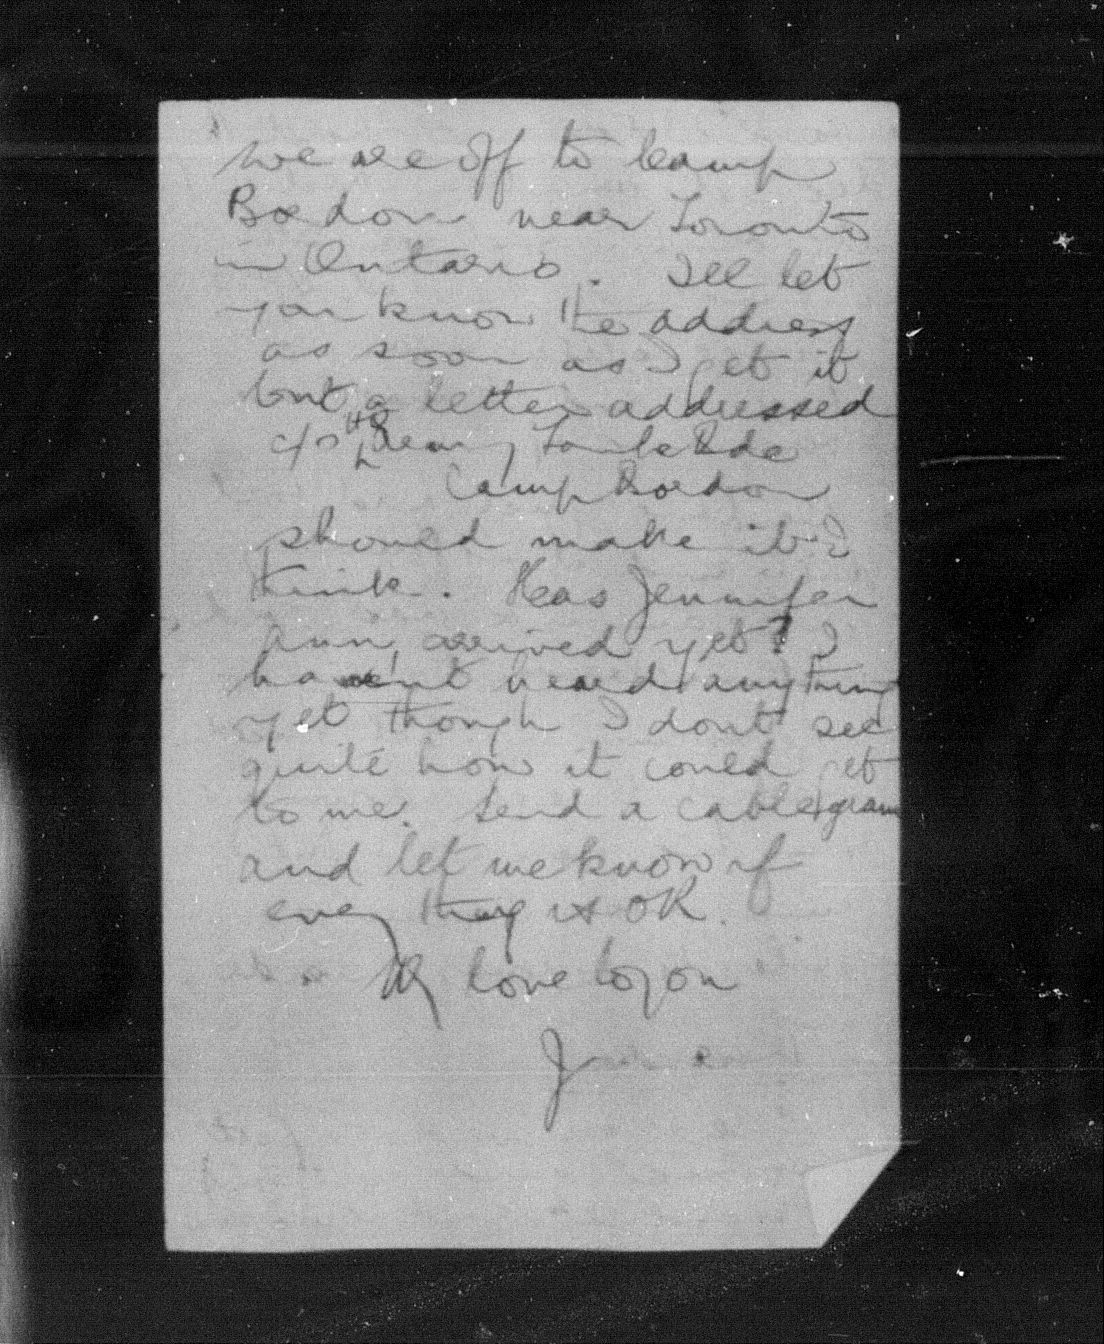 we are off to Camp
Bordon near Toronto
in Ontario. I'll let
you know the address
as soon as I get it
but a letter addressed
c/o HQ Army Tank Bde
Camp Bordon
should make it I
think. Has Jennifer
Ann arrived yet? I
haven't heard anything
yet though I dont see
quite how it could get
to me. Send a cablegram
and let me know if
every thing is OK.
My love to you